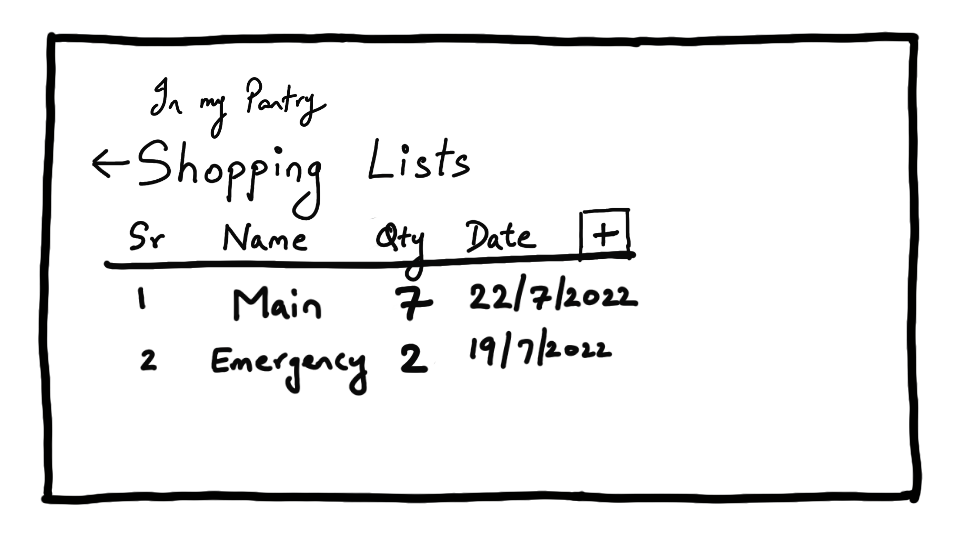 In my Pantry
← Shopping Lists
Sr Name Qty Date +
1 Main 7 22/7/2022
2 Emergency 2 19/7/2022